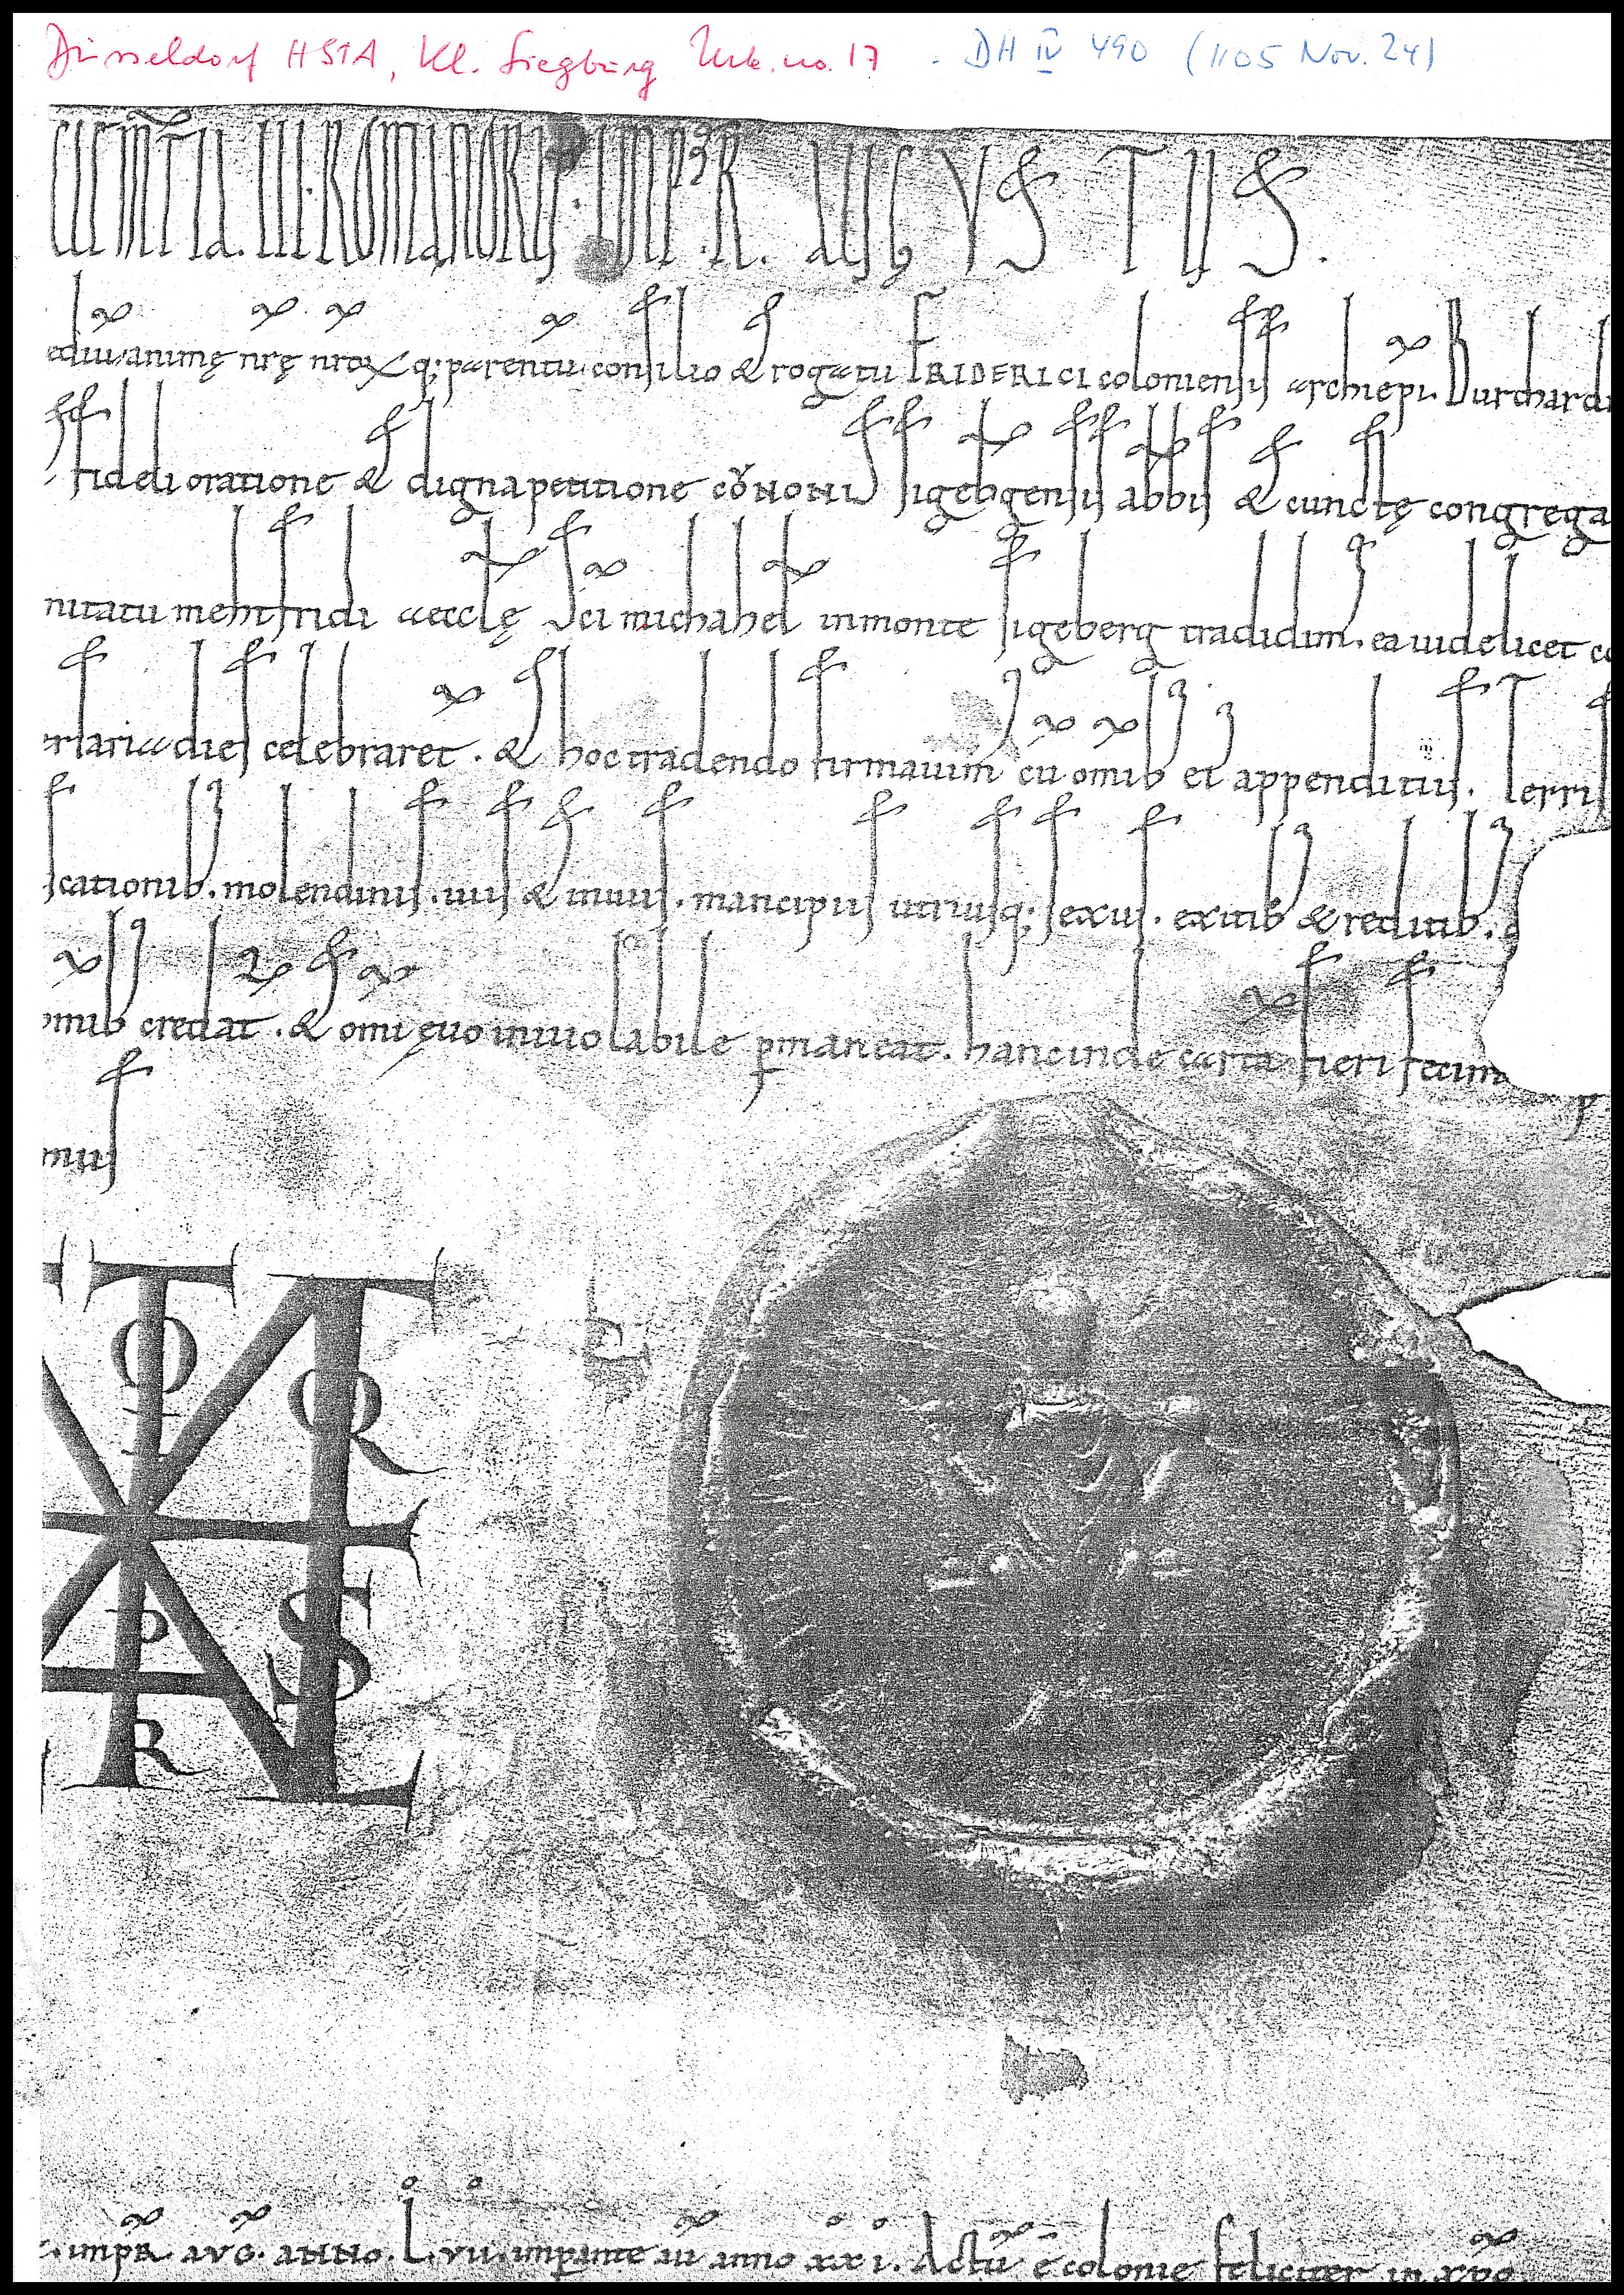 Düsseldorf HSTA, Kl. Siegburg Urk. no. 17 . DH IV 490 (1105 Nov. 24)
clem̅tia. III. ROMANORŲ. IMPR̅. AUGVSTUS.
ediū animę nr̅ę nr̅oꝝ q; parentū consilio & rogatu FRIDERICI coloniensis archiep̅i. Burchardi
fideli oratione & digna petitione CŏNONIS sigebg̅ensis abb̅is & cunctę congrega
nitatu mehtfridi aecclę Sc̅i michahel in monte sigeberg tradidim. ea uidelicet co
rsaria dies celebraret. & hoc tradendo firmauim cū om̅ib ei appenditiis. Terris
scationib. molendinis. uiis & inuiis. mancipiis utriusq; sexus. exitib & reditib.
om̅ib credat. & om̅i ęuo inuiolabile ꝑmaneat. hanc inde cartā fieri fecim
mus
O
R
P
S
R
. imp̅R. AVG. ANNO. L. VII. imp̅ante au̅ anno xxi. Actū ē colonie feliciter in xp̅o